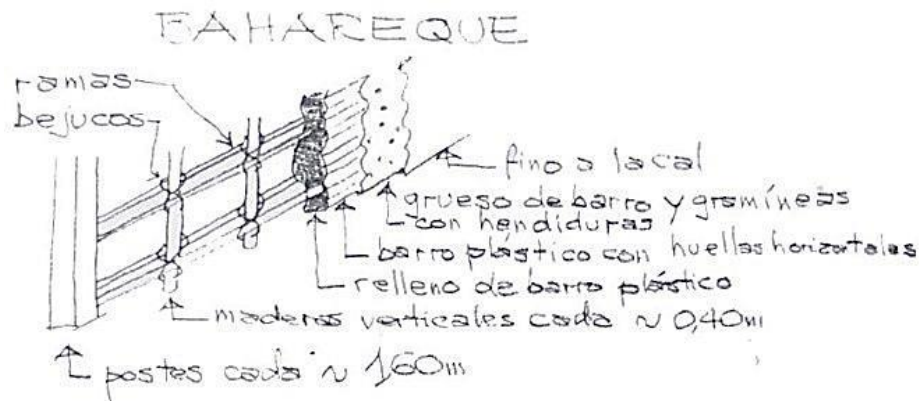 BAHAREQUE
ramas
bejucos
fino a la cal
grueso de barro y gramíneas
con hendiduras
barro plástico con huellas horizontales
relleno de barro plástico
maderas verticales cada ~ 0,40m
postes cada ~ 1,60m